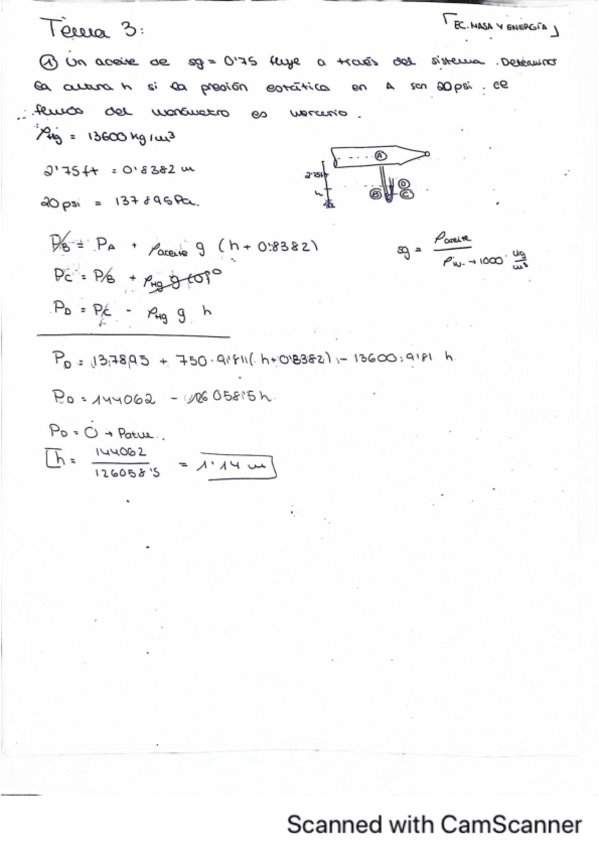 Tema 3:
[EC. MASA Y ENERGÍA]
① Un aceite de sg = 0'75 fluye a través del sistema. Determinar
la altura h si la presión estática en A son 20 psi. el
fluido del manómetro es mercurio.
ρHg = 13600 kg/m³
2'75 ft = 0'8382 m
20 psi = 137895 Pa.
A
2'75ft
h
B
D
C
PB = PA + ρaceite g (h + 0'8382)
sg = ρaceite / ρw → 1000 kg/m³
PC = PB + ρHg g (0)⁰
PD = PC - ρHg g h
PD = 137895 + 750·9'81(h+0'8382) - 13600·9'81 h
PD = 144062 - 126058'5 h
PD = 0 → Patm.
h = 144062 / 126058'5 = 1'14 m
Scanned with CamScanner